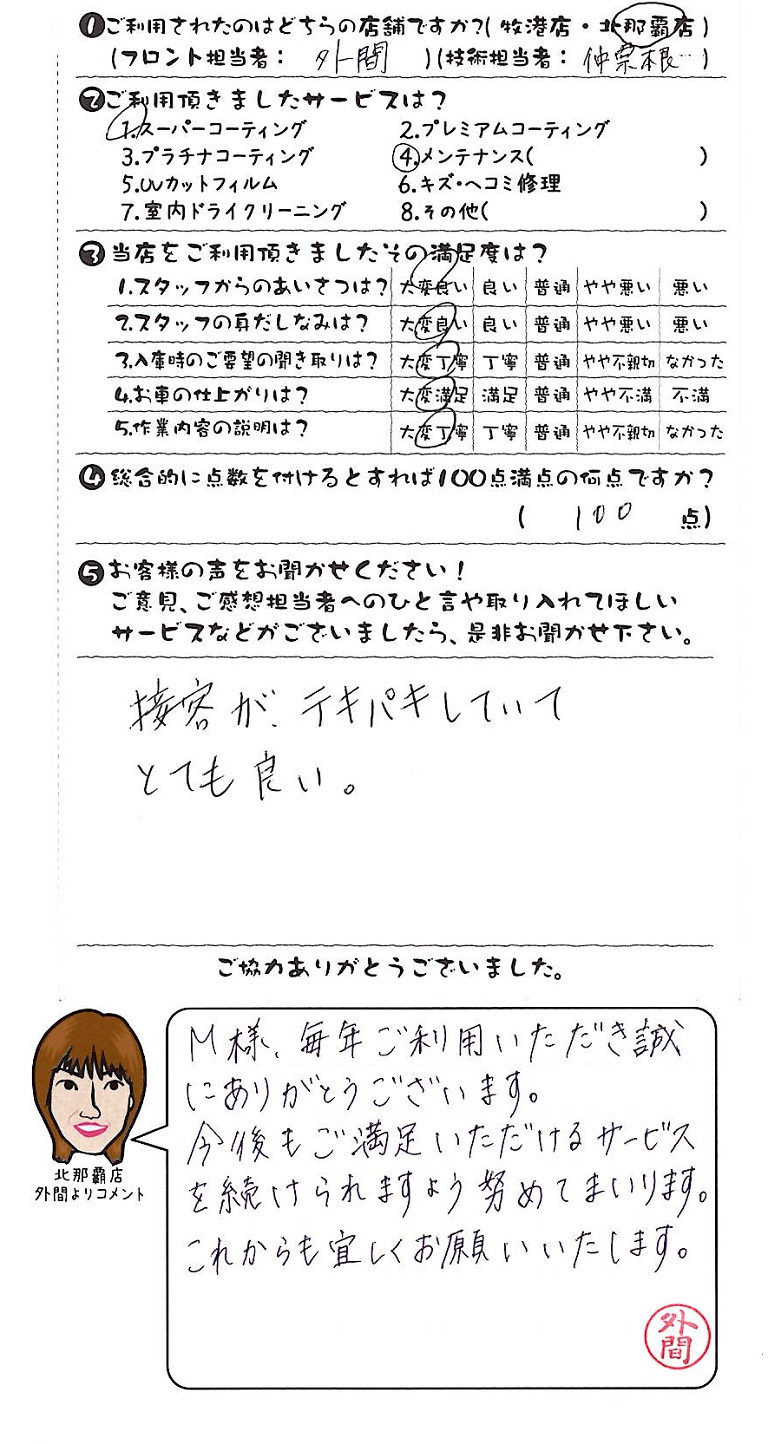 ❶ご利用されたのはどちらの店舗ですか?(牧港店・北那覇店)
(フロント担当者: 外間 )(技術担当者: 仲宗根 )
❷ご利用頂きましたサービスは?
1.スーパーコーティング 2.プレミアムコーティング
3.プラチナコーティング 4.メンテナンス( )
5.UVカットフィルム 6.キズ・ヘコミ修理
7.室内ドライクリーニング 8.その他( )
❸当店をご利用頂きましたその満足度は?
1.スタッフからのあいさつは? 大変良い 良い 普通 やや悪い 悪い
2.スタッフの身だしなみは? 大変良い 良い 普通 やや悪い 悪い
3.入庫時のご要望の聞き取りは? 大変丁寧 丁寧 普通 やや不親切 なかった
4.お車の仕上がりは? 大変満足 満足 普通 やや不満 不満
5.作業内容の説明は? 大変丁寧 丁寧 普通 やや不親切 なかった
❹総合的に点数を付けるとすれば100点満点の何点ですか?
( 100 点)
❺お客様の声をお聞かせください!
ご意見、ご感想担当者へのひと言や取り入れてほしい
サービスなどがございましたら、是非お聞かせ下さい。
接客が、テキパキしていて
とても良い。
ご協力ありがとうございました。
M様、毎年ご利用いただき誠
にありがとうございます。
今後もご満足いただけるサービス
を続けられますよう努めてまいります。
これからも宜しくお願いいたします。
北那覇店
外間よりコメント
外間